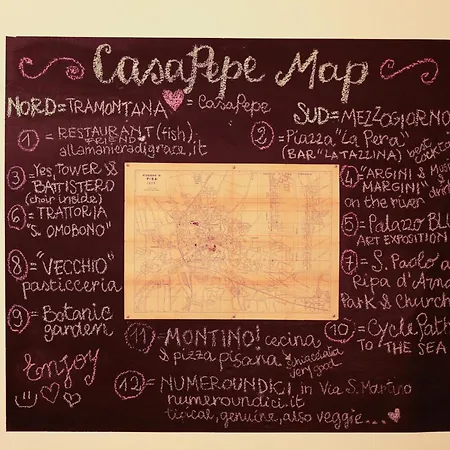 CasaPepe Map
NORD=TRAMONTANA = CasaPepe
SUD=MEZZOGIORNO
1 = RESTAURANT (fish)
allamanieradigrace,it
2 = Piazza "La Pera"
(BAR "LATAZZINA) best
3 = Yes, TOWER &
BATTISTERO
(choir inside)
4 = "ARGINI & Mus
MARGINI"
on the river
5 = Palazzo BLU
ART EXPOSITION
6 = TRATTORIA
"S. OMOBONO"
7 = S. Paolo a
Ripa d'Arno
Park & Church
8 = "VECCHIO"
pasticceria
9 = Botanic
garden
10 = CyclePath
TO THE SEA
11 = MONTINO! cecina
& pizza pisana & schiacciata
very good
12 = NUMEROUNDICI in Via S. Martino
numeroundici.it
tipical, genuine, also veggie...
Enjoy